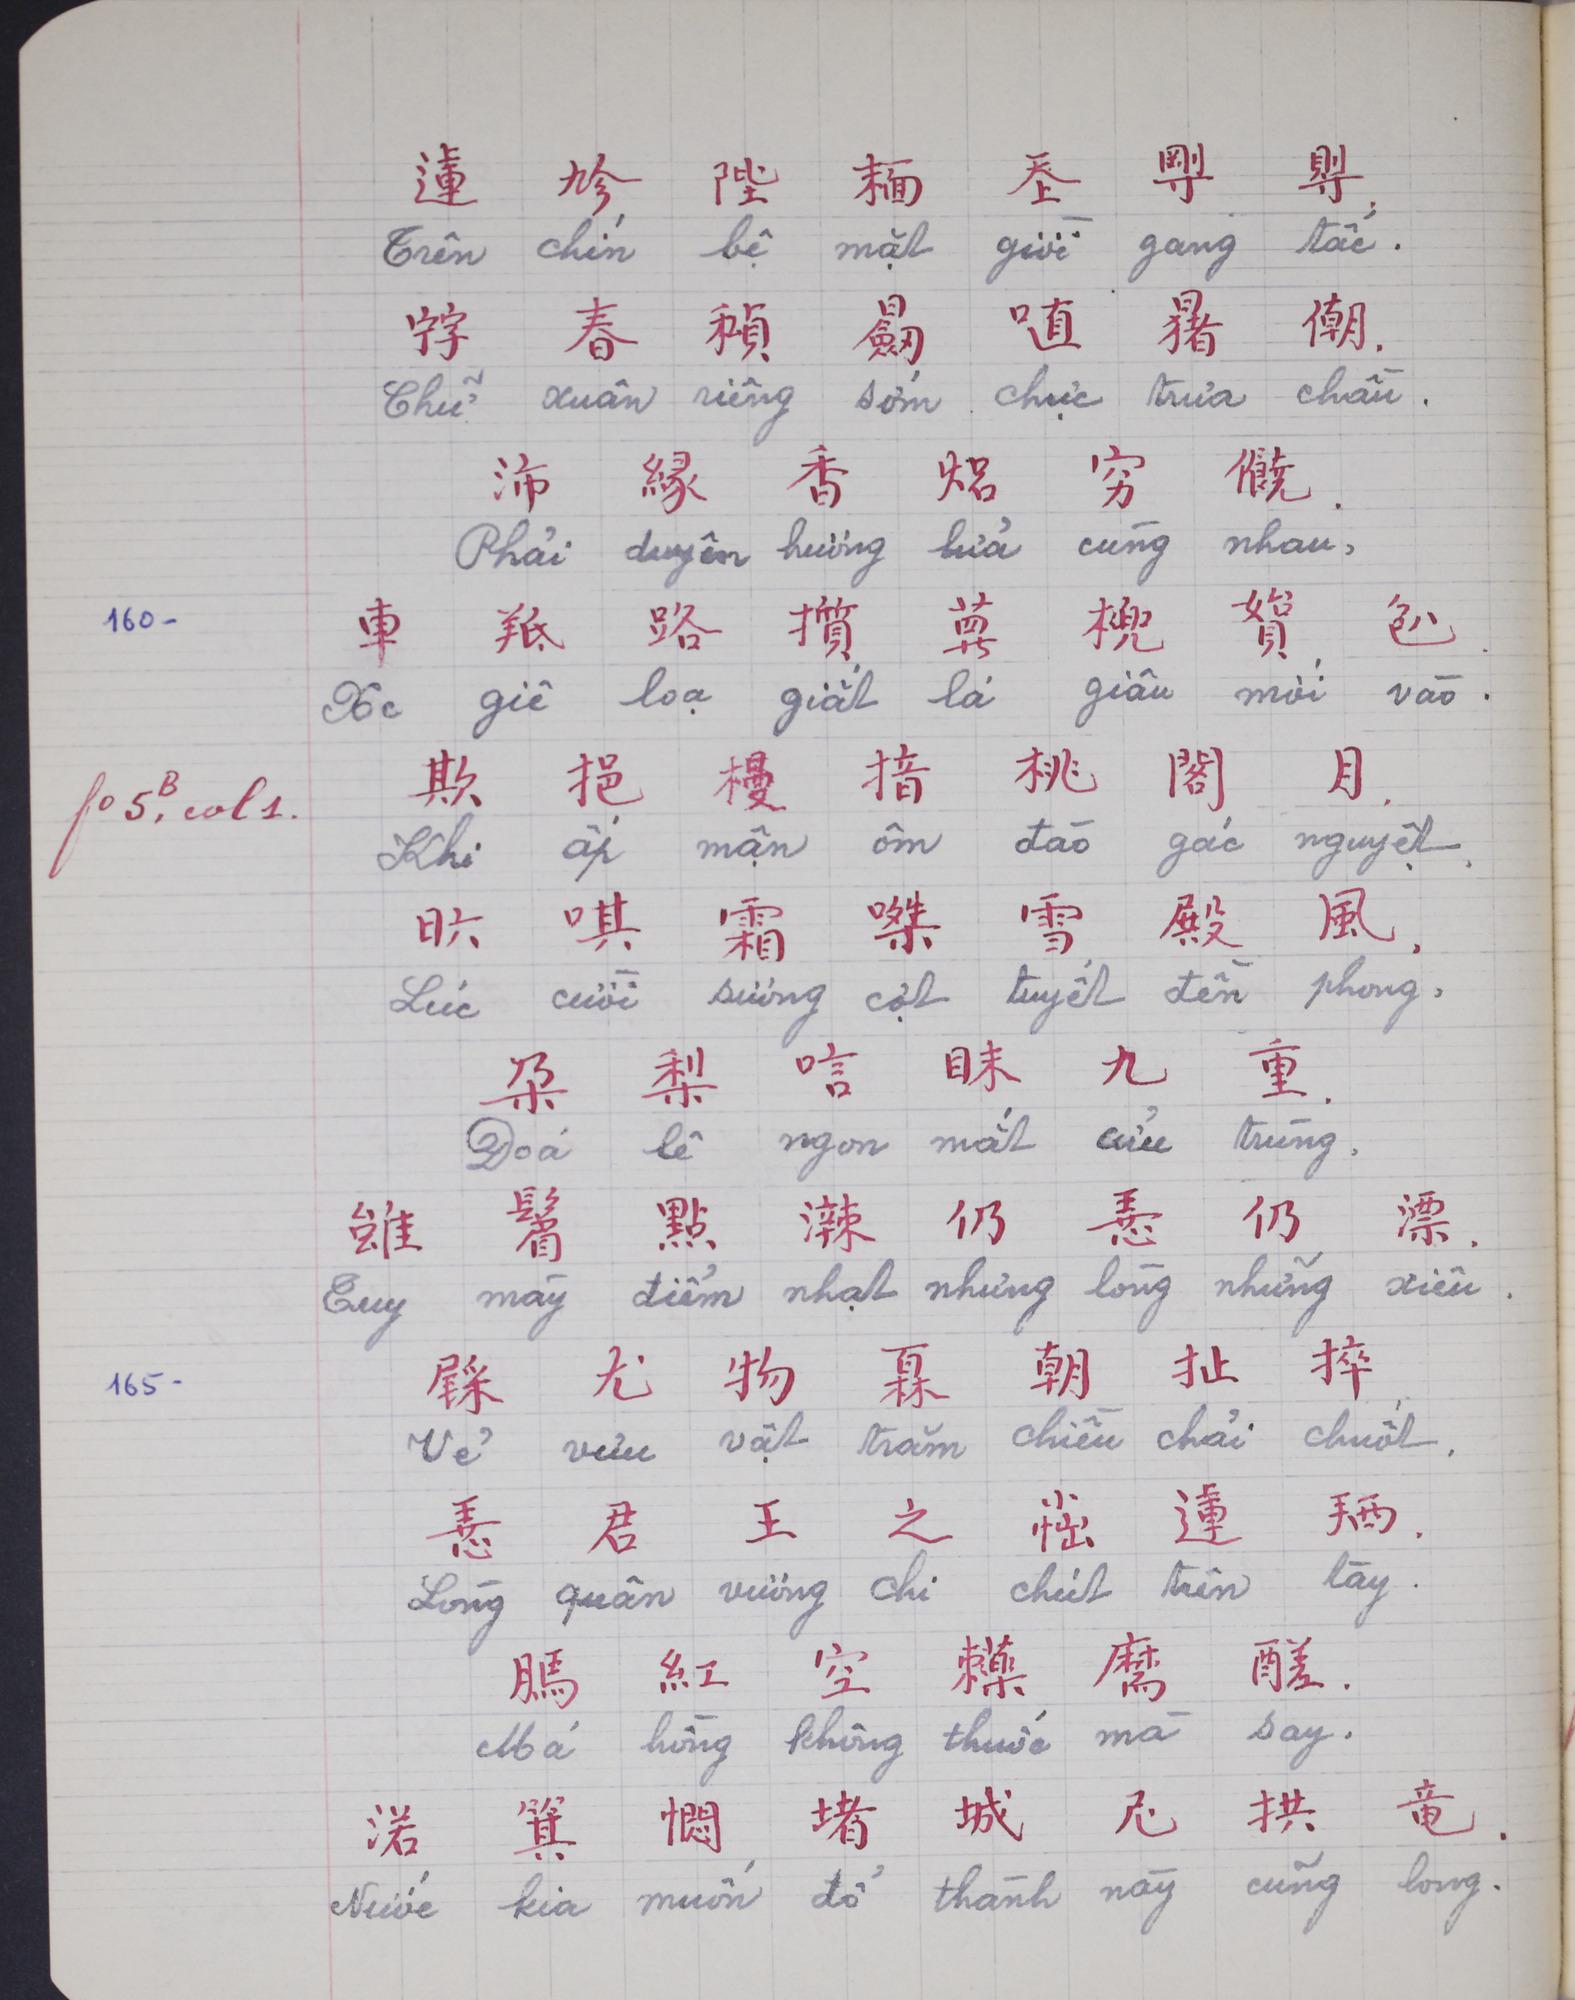 蓮 𢒂 陛 𩈘 𡗶 𡬼 𡬷.
Trên chín bệ mặt giời gang tấc.
𡨸 春 𥠭 𣌋 㖒 𣋂 僌.
Chữ xuân riêng sớm chực trưa chầu.
沛 緣 香 焒 穷 饒.
Phải duyên hương lửa cùng nhau,
160-
車 羝 路 㩫 蘿 槐 買 𠓨.
Xe giê lọa giắt lá giâu mời vào.
fo 5B, col 1.
欺 挹 槾 揞 桃 閣 月.
Khi ấp mận ôm đào gác nguyệt.
𣅶 唭 霜 嗱 雪 殿 風.
Lúc cười sương cợt tuyết đền phong,
朶 梨 唁 眜 九 重.
Doá lê ngon mắt cửu trùng.
雖 眉 點 溂 仍 𢚸 仍 漂.
Tuy mày điểm nhạt nhưng lòng những xiêu.
165-
尤 物 𤾓 朝 扯 捽
Vẻ vưu vật trăm chiều chải chuốt.
𢚸 君 王 之 蓮 𢬣.
Lòng quân vương chi chút trên tày.
𦟐 紅 空 𧆄 麽 醝.
Má hồng không thuốc mà say.
渃 箕 㦖 堵 城 尼 拱 竜.
Nước kia muốn đổ thành này cũng long.